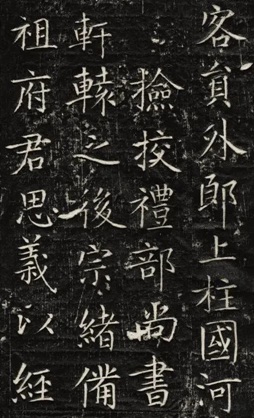 客負外郎上柱國河
撿挍禮部尚書
軒轅之後宗緒備
祖府君思義以經